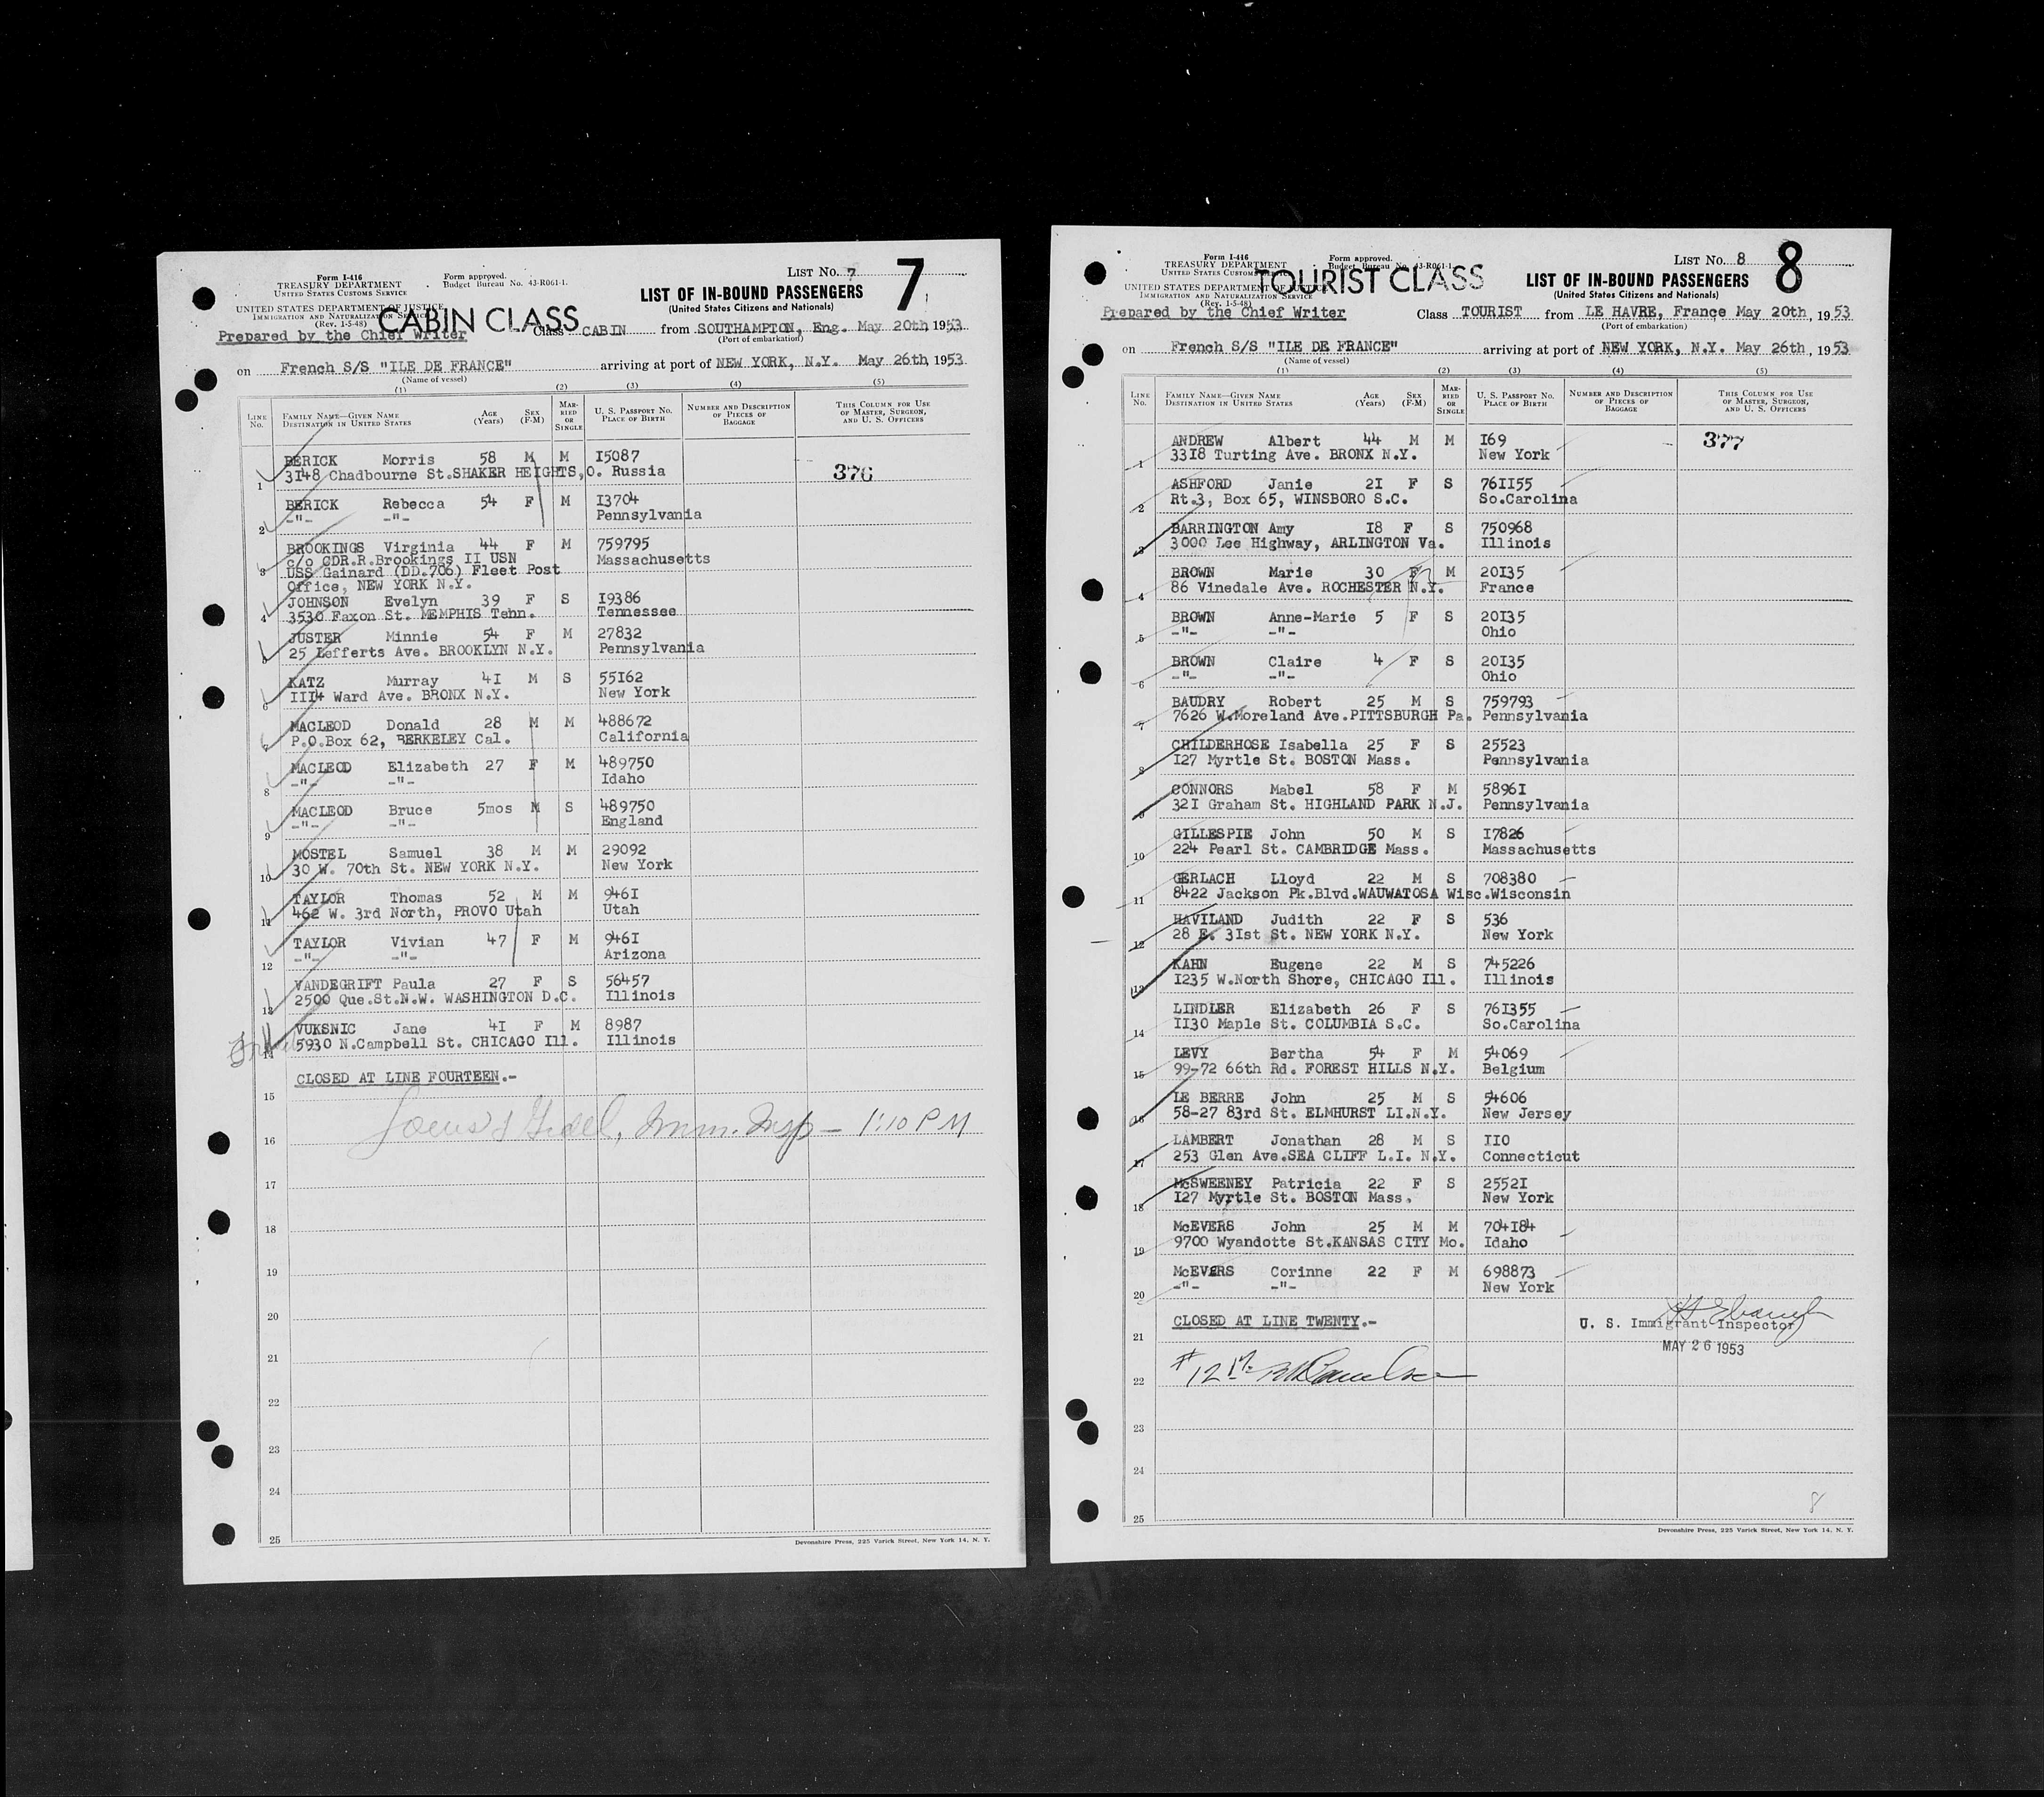 Form I-416
TREASURY DEPARTMENT
UNITED STATES CUSTOMS SERVICE
Form approved.
Budget Bureau No. 43-R061-1.
LIST No. 7
7
UNITED STATES DEPARTMENT OF JUSTICE
IMMIGRATION AND NATURALIZATION SERVICE
(Rev. 1-5-48)
CABIN CLASS
LIST OF IN-BOUND PASSENGERS
(United States Citizens and Nationals)
Prepared by the Chief Writer
Class CABIN from SOUTHAMPTON, Eng. May 20th 1953
(Port of embarkation)
on French S/S "ILE DE FRANCE" arriving at port of NEW YORK, N.Y. May 26th 1953
(Name of vessel)
(1) (2) (3) (4) (5)
LINE No. FAMILY NAME—GIVEN NAME DESTINATION IN UNITED STATES AGE (Years) SEX (F-M) MARRIED OR SINGLE U. S. PASSPORT No. PLACE OF BIRTH NUMBER AND DESCRIPTION OF PIECES OF BAGGAGE THIS COLUMN FOR USE OF MASTER, SURGEON, AND U. S. OFFICERS
BERICK Morris 58 M M I5087
1 3I48 Chadbourne St.SHAKER HEIGHTS,O. Russia 376
BERICK Rebecca 54 F M I3704
2 -"- -"- Pennsylvania
BROOKINGS Virginia 44 F M 759795
c/o CDR.R.Brookings II USN Massachusetts
3 USS Gainard (DD.706) Fleet Post
Office, NEW YORK N.Y.
JOHNSON Evelyn 39 F S I9386
4 3530 Faxon St. MEMPHIS Tehn. Tennessee
JUSTER Minnie 54 F M 27832
5 25 Lefferts Ave. BROOKLYN N.Y. Pennsylvania
KATZ Murray 4I M S 55I62
6 III4 Ward Ave. BRONX N.Y. New York
MACLEOD Donald 28 M M 488672
7 P.O.Box 62, BERKELEY Cal. California
MACLEOD Elizabeth 27 F M 489750
8 -"- -"- Idaho
MACLEOD Bruce 5mos M S 489750
9 -"- -"- England
MOSTEL Samuel 38 M M 29092
10 30 W. 70th St. NEW YORK N.Y. New York
TAYLOR Thomas 52 M M 946I
11 462 W. 3rd North, PROVO Utah Utah
TAYLOR Vivian 47 F M 946I
12 -"- -"- Arizona
VANDEGRIFT Paula 27 F S 56457
13 2500 Que.St.N.W. WASHINGTON D.C. Illinois
VUKSNIC Jane 4I F M 8987
14 5930 N.Campbell St. CHICAGO Ill. Illinois
CLOSED AT LINE FOURTEEN.-
15
16 Imm. Insp — 1:10 PM
17
18
19
20
21
22
23
24
25
Devonshire Press, 225 Varick Street, New York 14, N. Y.
Form I-416
TREASURY DEPARTMENT
UNITED STATES CUSTOMS SERVICE
Form approved.
Budget Bureau No. 43-R061-1.
LIST No. 8
8
UNITED STATES DEPARTMENT OF JUSTICE
IMMIGRATION AND NATURALIZATION SERVICE
(Rev. 1-5-48)
TOURIST CLASS
LIST OF IN-BOUND PASSENGERS
(United States Citizens and Nationals)
Prepared by the Chief Writer
Class TOURIST from LE HAVRE, France May 20th, 1953
(Port of embarkation)
on French S/S "ILE DE FRANCE" arriving at port of NEW YORK, N.Y. May 26th, 1953
(Name of vessel)
(1) (2) (3) (4) (5)
LINE No. FAMILY NAME—GIVEN NAME DESTINATION IN UNITED STATES AGE (Years) SEX (F-M) MARRIED OR SINGLE U. S. PASSPORT No. PLACE OF BIRTH NUMBER AND DESCRIPTION OF PIECES OF BAGGAGE THIS COLUMN FOR USE OF MASTER, SURGEON, AND U. S. OFFICERS
ANDREW Albert 44 M M I69 377
1 33I8 Turting Ave. BRONX N.Y. New York
ASHFORD Janie 2I F S 76II55
2 Rt.3, Box 65, WINSBORO S.C. So.Carolina
BARRINGTON Amy I8 F S 750968
3 3000 Lee Highway, ARLINGTON Va. Illinois
BROWN Marie 30 F M 20I35
4 86 Vinedale Ave. ROCHESTER N.Y. France
BROWN Anne-Marie 5 F S 20I35
5 -"- -"- Ohio
BROWN Claire 4 F S 20I35
6 -"- -"- Ohio
BAUDRY Robert 25 M S 759793
7 7626 W.Moreland Ave.PITTSBURGH Pa. Pennsylvania
CHILDERHOSE Isabella 25 F S 25523
8 I27 Myrtle St. BOSTON Mass. Pennsylvania
CONNORS Mabel 58 F M 5896I
9 32I Graham St. HIGHLAND PARK N.J. Pennsylvania
GILLESPIE John 50 M S I7826
10 224 Pearl St. CAMBRIDGE Mass. Massachusetts
GERLACH Lloyd 22 M S 708380
11 8422 Jackson Pk.Blvd.WAUWATOSA Wisc.Wisconsin
HAVILAND Judith 22 F S 536
12 28 E. 3Ist St. NEW YORK N.Y. New York
KAHN Eugene 22 M S 745226
13 I235 W.North Shore, CHICAGO Ill. Illinois
LINDLER Elizabeth 26 F S 76I355
14 II30 Maple St. COLUMBIA S.C. So.Carolina
LEVY Bertha 54 F M 54069
15 99-72 66th Rd. FOREST HILLS N.Y. Belgium
LE BERRE John 25 M S 54606
16 58-27 83rd St. ELMHURST LI.N.Y. New Jersey
LAMBERT Jonathan 28 M S II0
17 253 Glen Ave.SEA CLIFF L.I. N.Y. Connecticut
McSWEENEY Patricia 22 F S 2552I
18 I27 Myrtle St. BOSTON Mass. New York
McEVERS John 25 M M 704I84
19 9700 Wyandotte St.KANSAS CITY Mo. Idaho
McEVERS Corinne 22 F M 698873
20 -"- -"- New York
CLOSED AT LINE TWENTY.-
U. S. Immigrant Inspector
21 MAY 26 1953
22 #12
23
24
8
25
Devonshire Press, 225 Varick Street, New York 14, N. Y.